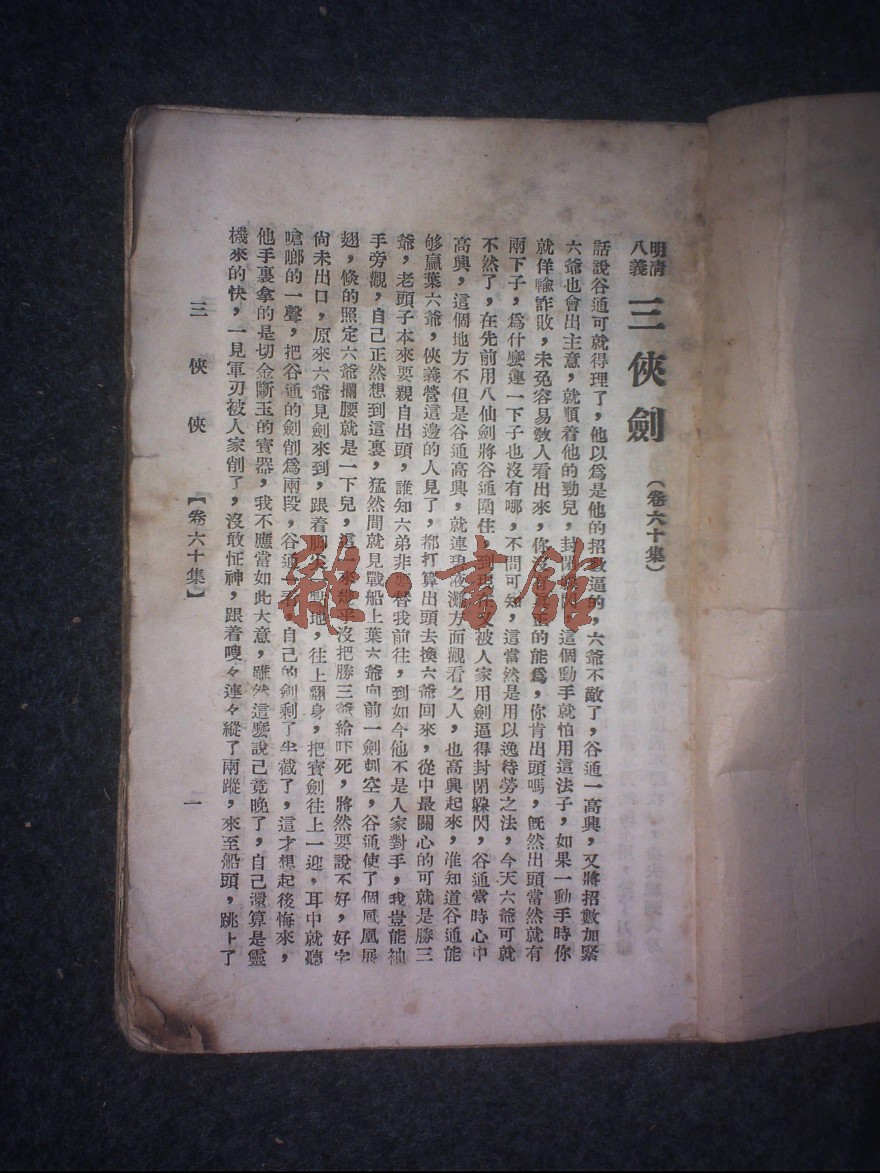 明清
八義
三俠劍
(卷六十集)
話說谷通可就得理了，他以爲是他的招數逼的，六爺不敵了，谷通一高興，又將招數加緊
六爺也會出主意，就順着他的勁兒，封閉 閃，這個動手就怕用這法子，如果一動手時你
就佯輸詐敗，未免容易敎人看出來，你沒有 正的能爲，你肯出頭嗎，旣然出頭當然就有
兩下子，爲什麽連一下子也沒有哪，不問可知，這當然是用以逸待勞之法，今天六爺可就
不然了，在先前用八仙劍將谷通圍住， 到現 又被人家用劍逼得封閉躱閃，谷通當時心中
高興，這個地方不但是谷通高興，就連 灘方面觀看之人，也高興起來，准知道谷通能
够贏葉六爺，俠義營這邊的人見了，都打算出頭去換六爺回來，從中最關心的可就是勝三
爺，老頭子本來要親自出頭，誰知六弟非要替我前往，到如今他不是人家對手，我豈能袖
手旁觀，自己正然想到這裏，猛然間就見戰船上葉六爺向前一劍刺空，谷通使了個鳳凰展
翅，倐的照定六爺攔腰就是一下兒，這一來幾乎沒把勝三爺給吓死，將然要說不好，好字
尙未出口，原來六爺見劍來到，跟着脚尖一點地，往上翻身，把寳劍往上一迎，耳中就聽
嗆啷的一聲，把谷通的劍削爲兩段，谷通一看，自己的劍剩了半截了，這才想起後悔來，
他手裏拿的是切金斷玉的寳器，我不應當如此大意，雖然這麽說已竟晚了，自己還算是靈
機來的快，一見軍刃被人家削了，沒敢怔神，跟着嗖々連々縱了兩蹤，來至船頭，跳上了
三俠俠
【卷六十集】
一
雜·書館